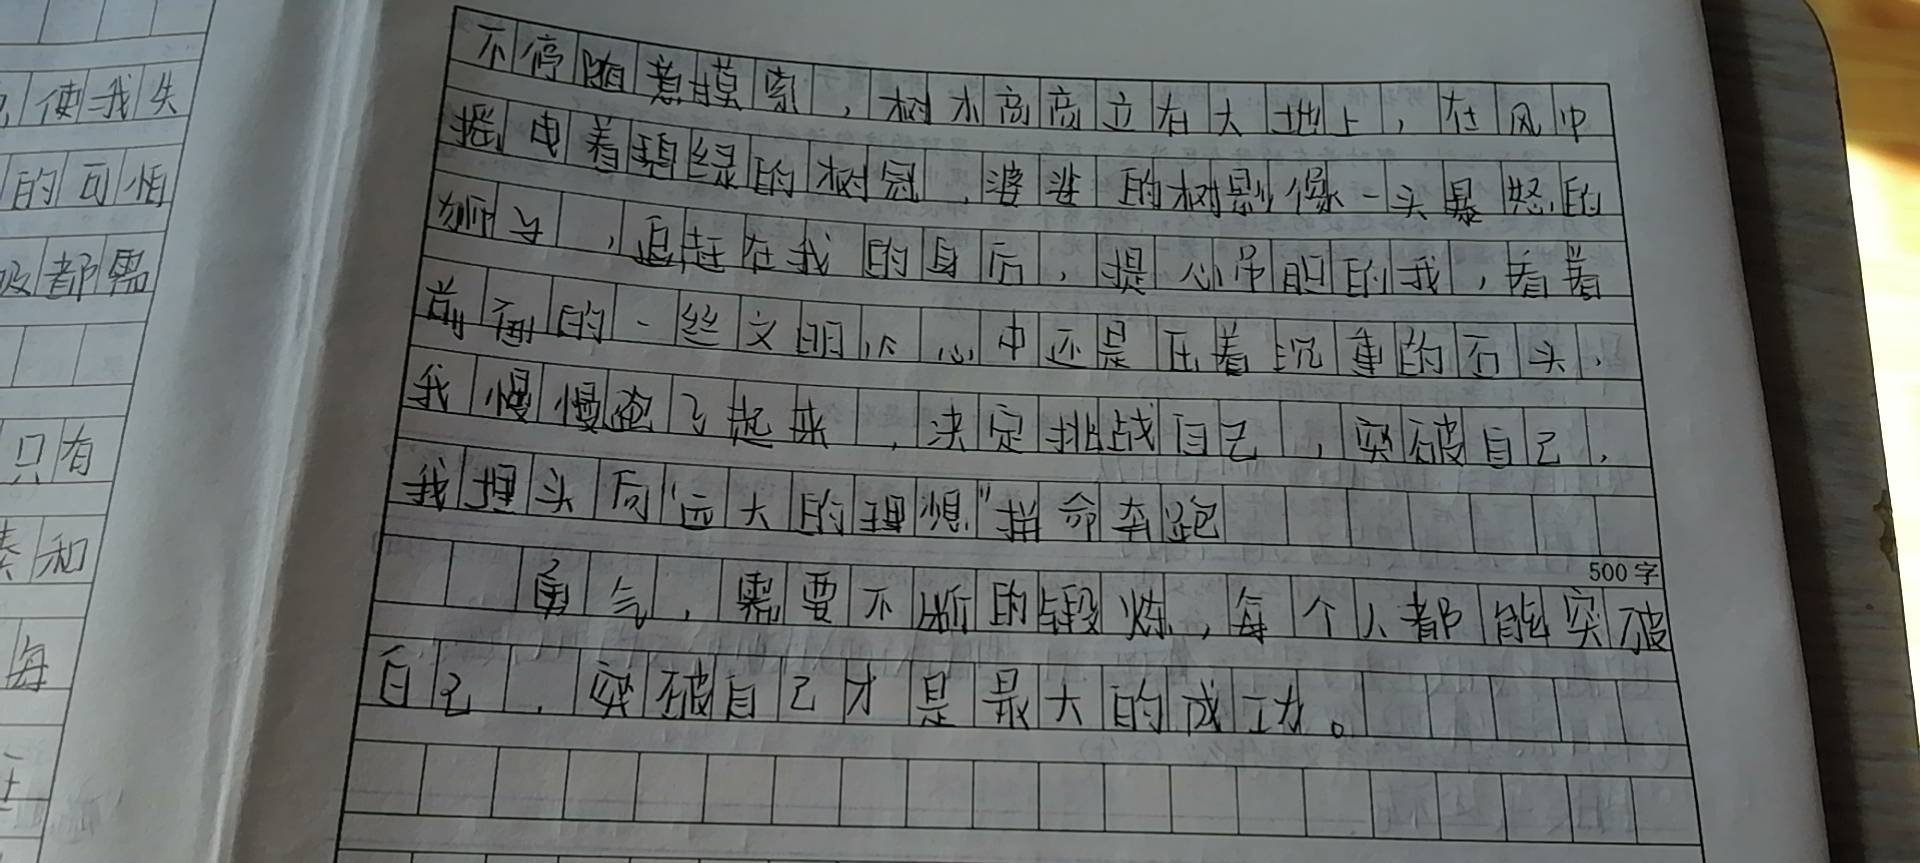 使我失
的可怕
都需
只有
和
每
不停随着摸索，树木高高立在大地上，在风中
摇曳着碧绿的树冠，婆娑的树影像一头暴怒的
狮子，追赶在我的身后，提心吊胆的我，看着
前面的一丝文明，心中还是压着沉重的石头，
我慢慢跑了起来，决定挑战自己，突破自己，
我埋头向“远大的理想”拼命奔跑
500字
勇气，需要不断的锻炼，每个人都能突破
自己，突破自己才是最大的成功。